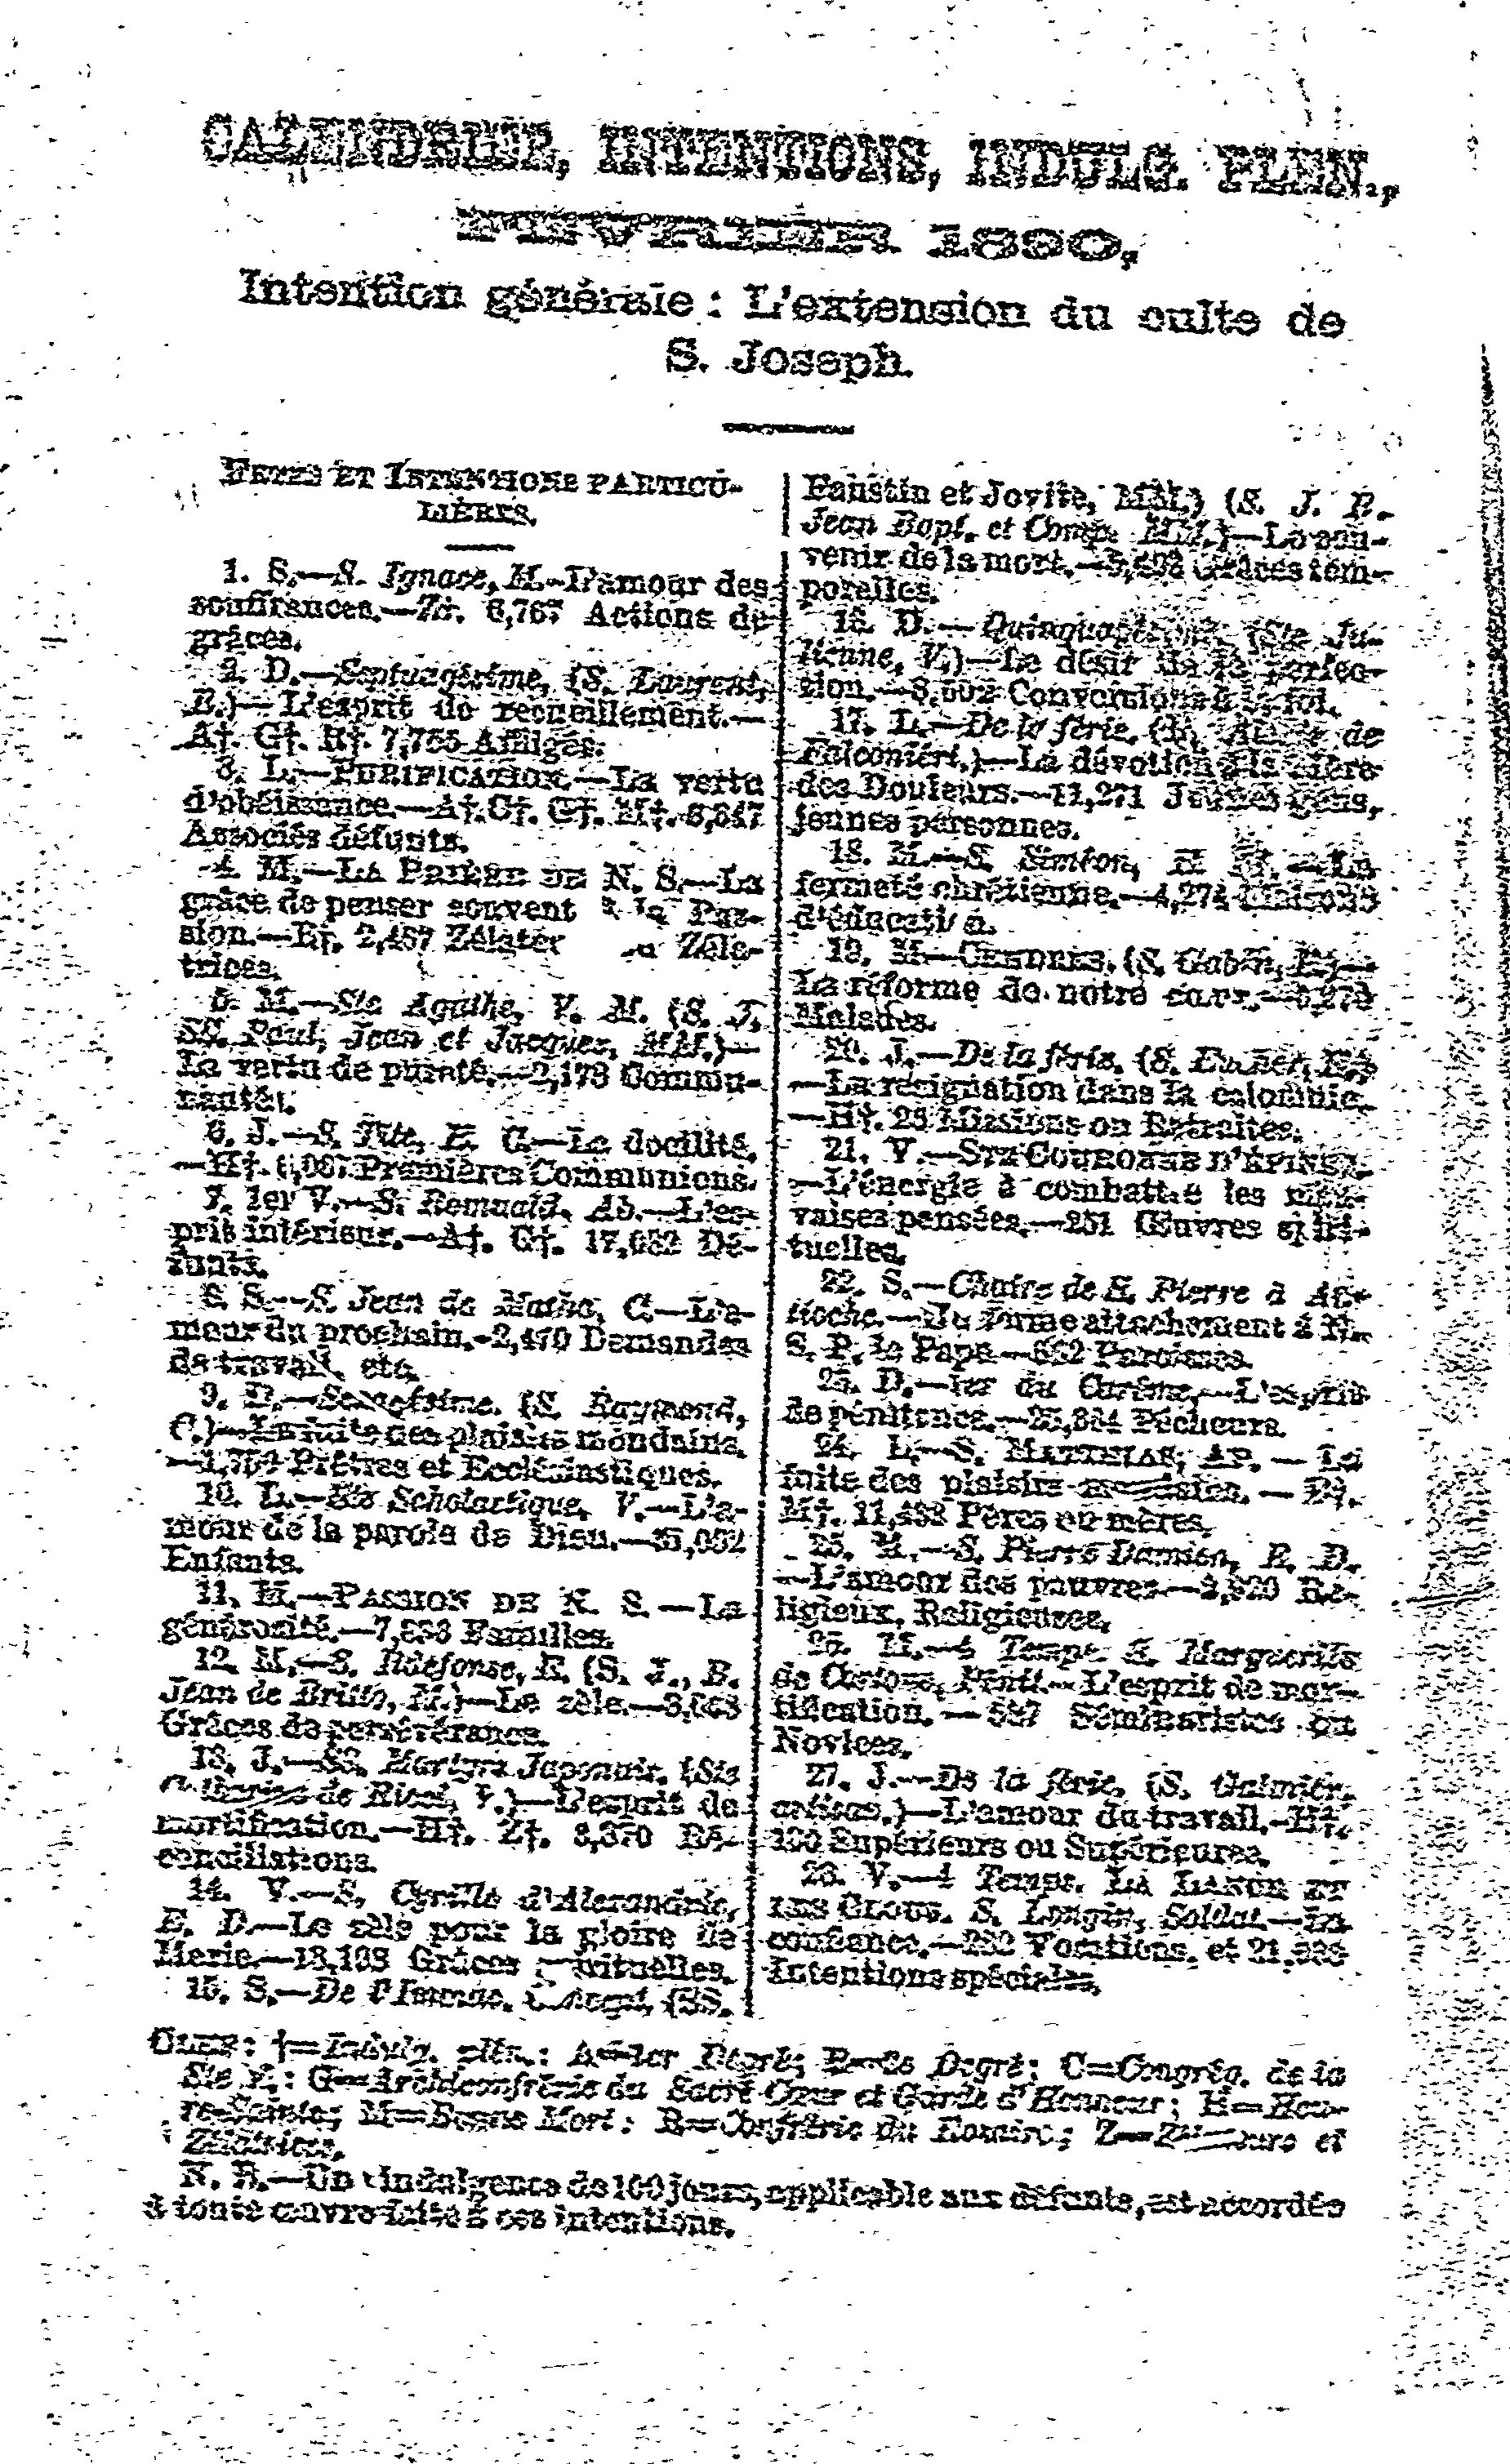 CALENDRIER, INTENTIONS, INDULG. PLEN.,
FEVRIER 1890,
Intention générale : L'extension du culte de
S. Joseph.
FETES ET INTENTIONS PARTICU-
LIÈRES.
1. S.—S. Ignace, M.—L'amour des
souffrances.—Z†. 6,767 Actions de
grâces.
2. D.—Septuagésime, (S. Laurent,
E.)—L'esprit de recueillement.—
A†. G†. R†. 7,755 Affligés.
3. L.—PURIFICATION.—La vertu
d'obéissance.—A†. C†. G†. M†. 6,647
Associés défunts.
4. M.—LA PRIÈRE DE N. S.—La
grâce de penser souvent à la Pas-
sion.—R†. 2,457 Zélate Zéla-
trices.
5. M.—Ste Agathe, V. M. (S. J.
SS. Paul, Jean et Jacques, MM.)—
La vertu de pureté.—2,173 Commu-
nautés.
6. J.—S. Tite, E. C.—La docilité.
—H†. Premières Communions.
7. 1er V.—S. Romuald, Ab.—L'es-
prit intérieur.—A†. G†. 17,032 Dé-
funts.
8. S.—S. Jean de Matha, C.—L'a-
mour du prochain.—2,470 Demandes
de travail, etc.
9. D.—Sexagésime. (S. Raymond,
C.)—La fuite des plaisirs mondains.
—1,759 Prêtres et Ecclésiastiques.
10. L.—Ste Scholastique, V.—L'a-
mour de la parole de Dieu.— Enfants.
11. M.—PASSION DE N. S.—La
générosité.—7,838 Familles.
12. M.—S. Ildefonse, E. (S. J., B.
Jean de Britto, M.)—Le zèle.—3,663
Grâces de persévérance.
13. J.—SS. Martyrs Japonais. (Ste
Catherine de Ricci, V.)—L'esprit de
mortification.—H†. Z†. 8,370 Ré-
conciliations.
14. V.—S. Cyrille d'Alexandrie,
E. D.—Le zèle pour la gloire de
Marie.—13,108 Grâces spirituelles.
15. S.—De l'Immac. Concept. (SS.
Faustin et Jovite, MM.) (S. J. B.
Jean Bapt. et Comp. MM.)—Le sou-
venir de la mort.— Grâces tem-
porelles.
16. D.—Quinquagésime. (Ste Ju-
lienne, V.)—Le désir de la perfec-
tion.—8,502 Conversions à la foi.
17. L.—De la férie. de
Falconiéri.)—La dévotion à la Mère
des Douleurs.—11,271 Jeunes gens,
jeunes personnes.
18. M.—S. Siméon, E. M.—La
fermeté chrétienne.—4,274 Maisons
d'éducation.
19. M.—CENDRES. (S. Gabin, P.)—
La réforme de notre cœur.— Malades.
20. J.—De la férie. (S. Eucher, E.)
—La résignation dans la calomnie.
—H†. 23 Missions ou Retraites.
21. V.—STE COURONNE D'ÉPINES.
—L'énergie à combattre les mau-
vaises pensées.—251 Œuvres spiri-
tuelles.
22. S.—Chaire de S. Pierre à An-
tioche.—Un ferme attachement à N.
S. P. le Pape.—662 Paroisses.
23. D.—1er du Carême.—L'esprit
de pénitence.—25,884 Pécheurs.
24. L.—S. MATTHIAS, AP.—La
fuite des plaisirs .— M†. 11,433 Pères ou mères.
25. M.—S. Pierre Damien, E. D.
—L'amour des pauvres.—2,820 Re-
ligieux, Religieuses.
26. M.—4 Temps. S. Marguerite
de Cortone, Pénit.—L'esprit de mor-
tification.—537 Séminaristes ou
Novices.
27. J.—De la férie. (S. Galmier,
artisan.)—L'amour du travail.—H†.
190 Supérieurs ou Supérieures.
28. V.—4 Temps. LA LANCE ET
LES CLOUS. S. Longin, Soldat.—La
confiance.— Vocations, et Intentions spéciales.
CLEF: †=Indulg. plén.: A=1er Degré; B=2e Degré; C=Congrég. de la
Ste V.: G=Archiconfrérie du Sacré-Cœur et Garde d'Honneur; H=Heu-
re-Sainte; M=Bonne Mort: R=Confrérie du Rosaire; Z=Zélateurs et
Zélatrices.
N. B.—Une indulgence de 100 jours, applicable aux défunts, est accordée
à toute œuvre faite à ces intentions.